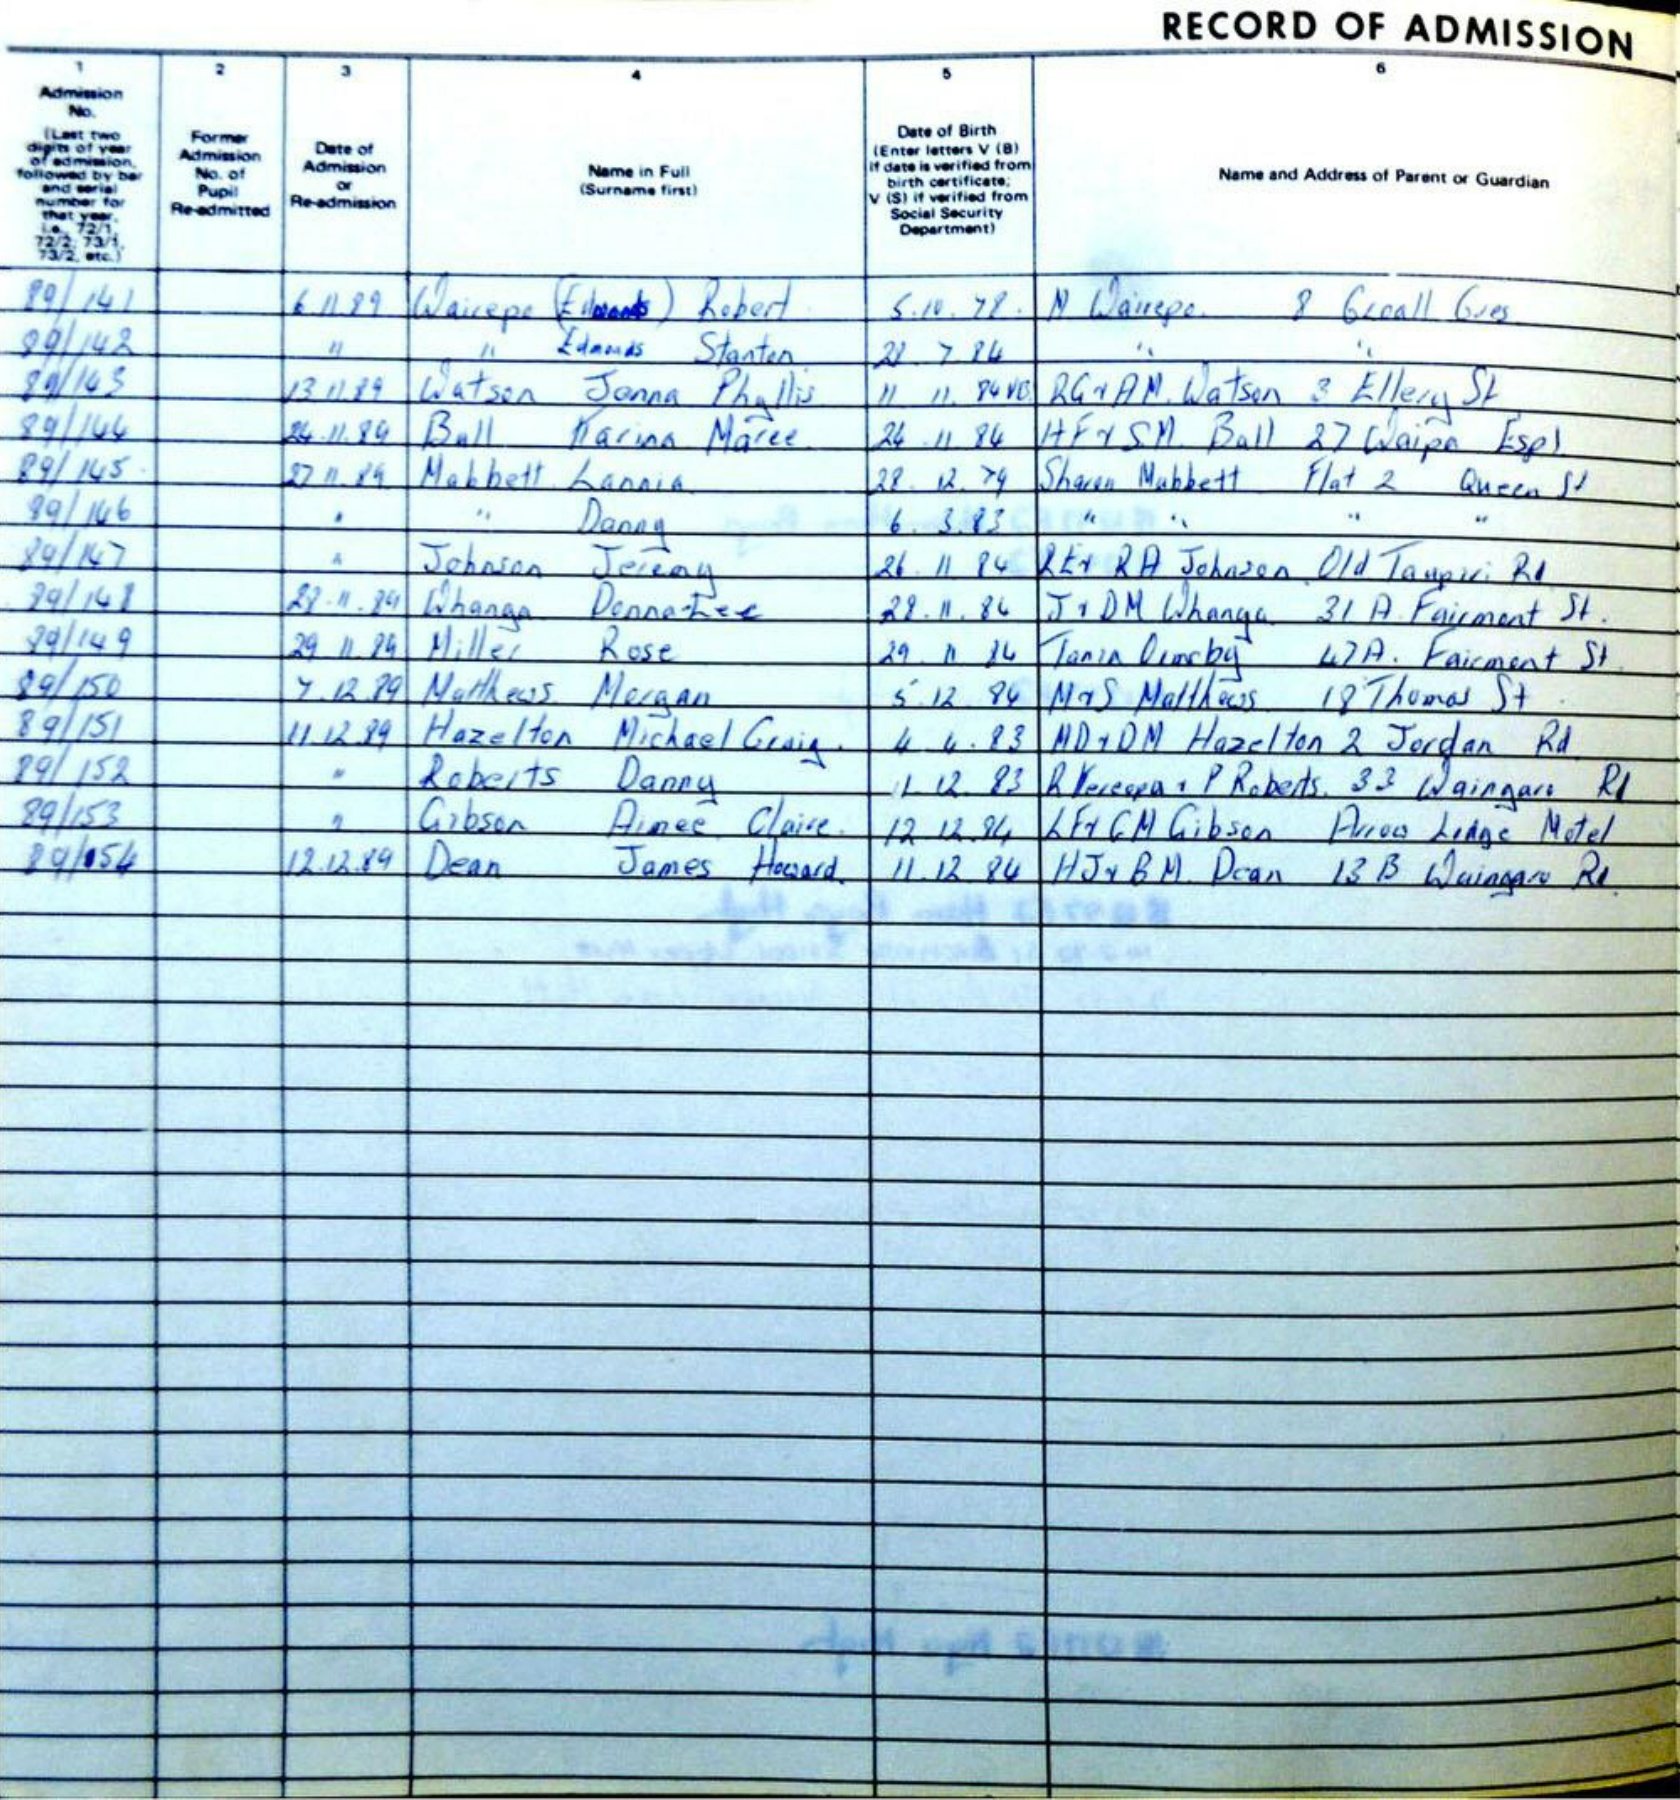 RECORD OF ADMISSION
1 2 3 4 5 6
Admission No. (Last two digits of year of admission, followed by bar and serial number for that year, i.e., 72/1, 72/2, 73/1, 73/2, etc.)
Former Admission No. of Pupil Re-admitted
Date of Admission or Re-admission
Name in Full (Surname first)
Date of Birth (Enter letters V (B) if date is verified from birth certificate; V (S) if verified from Social Security Department)
Name and Address of Parent or Guardian
89/141 6.11.89 Wairepo (Edmonds) Robert 5.10.78. N Wairepo. 8 Cres
89/142 " " Edmonds Stanten 28 7 84 " "
89/143 13.11.89 Watson Jenna Phyllis 11 11. 84 VB RG & AM. Watson 3 Ellery St
89/144 24.11.89 Ball Karina Maree 24 11 84 HF & SM. Ball 27 Waipa Esp
89/145 27.11.89 Mabbett 28. 12. 79 Sharon Mabbett Flat 2 Queen St
89/146 " " Danny 6 3.83 " " " "
89/147 " Johnson Jeremy 26 11 84 RE & RA Johnson Old Taupiri Rd
89/148 28.11.89 Whanga Donna-Lee 28.11.84 J & DM Whanga 31 A. Fairmont St.
89/149 29.11.89 Miller Rose 29 11 84 Tania Ormsby 47A. Fairmont St
89/150 7.12.89 Matthews Morgan 5 12 84 M & S Matthews 18 Thomas St
89/151 11.12.89 Hazelton Michael Craig. 4 4. 83 MD & DM Hazelton 2 Jordan Rd
89/152 " Roberts Danny 11. 12. 83 R & P Roberts. 33 Waingaro Rd
89/153 " Gibson Aimee Claire. 12 12.84 LF & CM Gibson Arrow Lodge Motel
89/154 12.12.89 Dean James Howard. 11.12 84 HJ & BM. Dean 13 B Waingaro Rd.